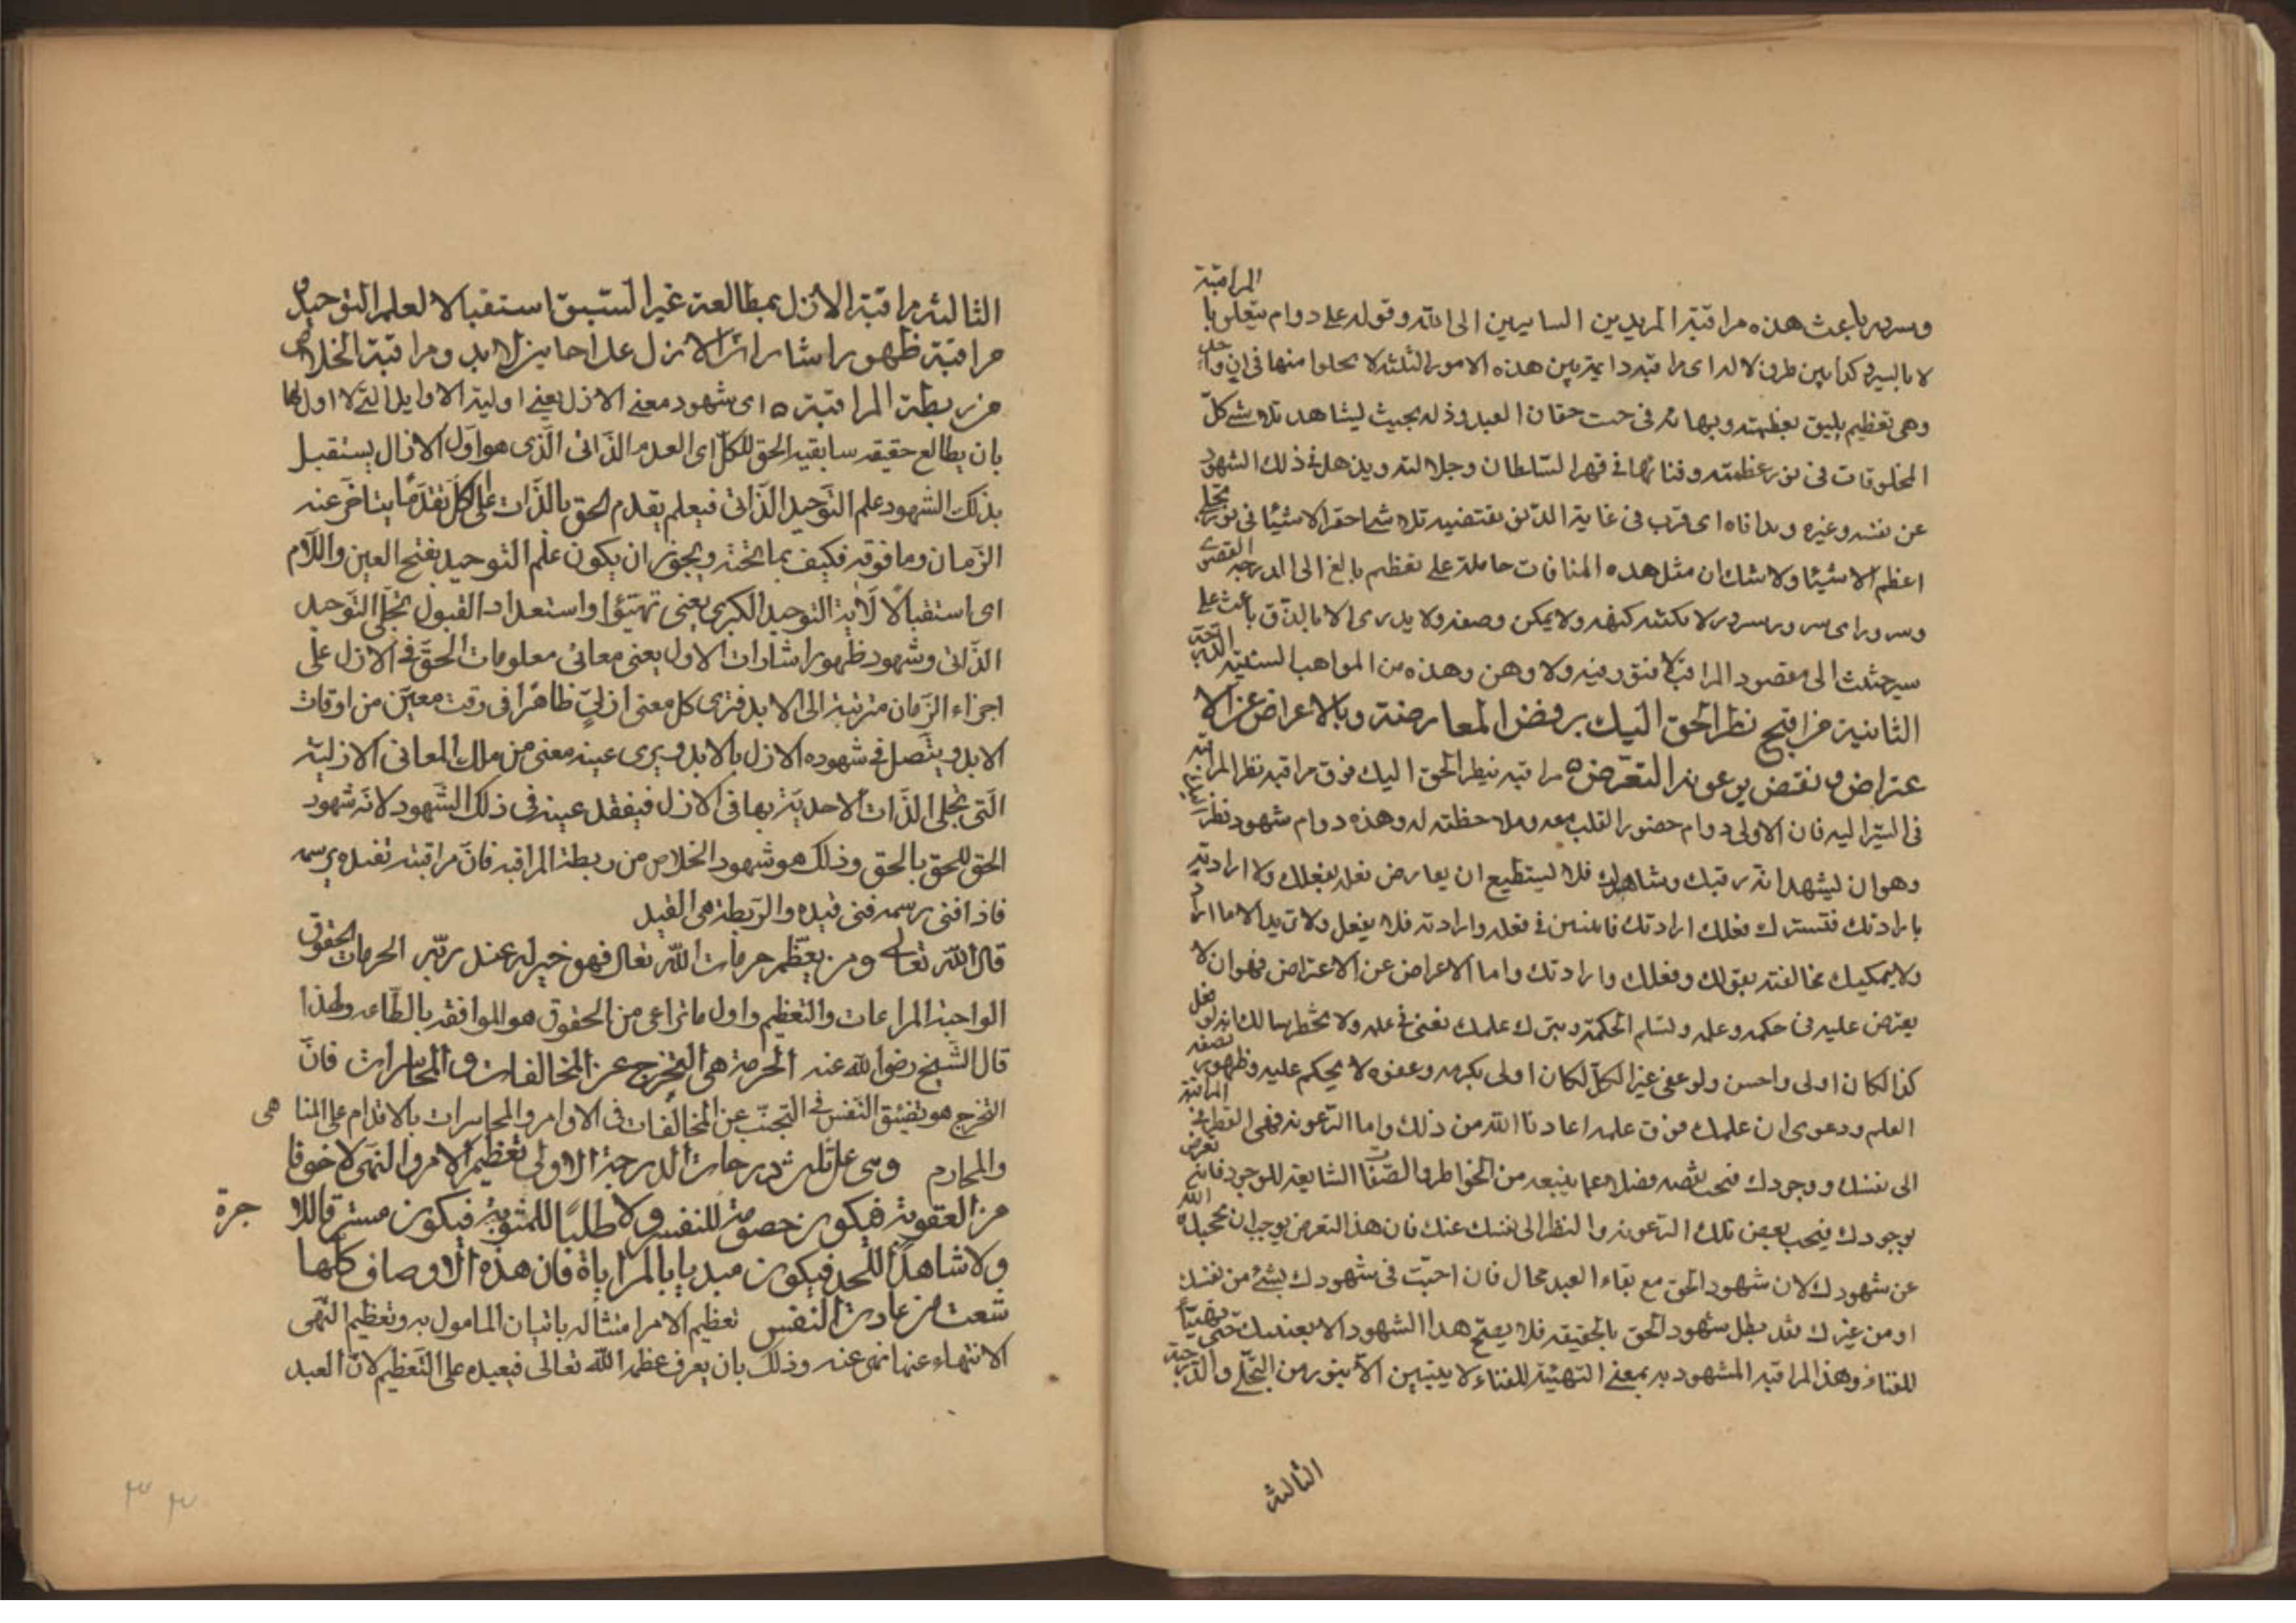 المراقبة
وسرور باعث هذه مراقبة المريدين السايرين الى الله وقوله على دوام يتعلق با
لا بالسير وكذا بين طرف لاله اى مراقبه دايمة بين هذه الامور الثلثة لا يخلوا منها فى اى وا
وهى تعظيم يليق بعظمته وبهائه فى حقان العبد وذله بحيث ليشاهد تلاشى كل
المخلوقات فى نور عظمته وفنائها فى قهر السلطان وجلالته ويذهل فى ذلك الشهود
عن نفسه وغيره ومداناه اى قرب فى غاية الدنو يقتضيه تلاشى احقر الاشيا فى نور تجلى
اعظم الاشيا ولا شك ان مثل هذه المنافات حاملة على تعظيم بالغ الى الدرجة القصوى
وسرور اى سرور وسرور لا يكتنه كنهه ولا يمكن وصفه ولا يدرى الا بالذوق باعث على
سير حثيث الى مقصود المراقب لا فتور فيه ولا وهن وهذه من المواهب السنية
الثانية مراقبة نظر الحق اليك برفض المعارضة وبالاعراض عن الا
عتراض ونقض يوعونة التعرض ه مراقبه نظر الحق اليك فوق مراقبه نظر المراقبه
فى السير اليه فان الاولى دوام حضور القلب معه وملاحظته له وهذه دوام شهود نظر
وهو ان ليشهد انه رقبك وشاهدك فلا ليستطيع ان يعارض فعله بفعلك ولا ارادته
بارادتك فتسترك فعلك ارادتك فانيين فى فعله وارادته فلا يفعل ولا تريد الا ما اراد
ولا يمكنك مخالفته بقولك وفعلك وارادتك واما الاعراض عن الاعتراض فهو ان لا
يعترض عليه فى حكمه وعلمه ولسلم الحكمة وبترك علمك تفنى فى علمه ولا يخطر ببالك انه لو فعل
كذا لكان اولى واحسن ولو عفى عن الكل لكان اولى بكرمه وعفوه لا يحكم عليه وظهور نصفه
العلم ودعوى ان علمك فوق علمه اعاذنا الله من ذلك واما الرعونة فهى القطرانية
الى نفسك ووجودك فنحب نقصه فضلا عما يتبعه من الخواطر والصفات الشايعة للموجود فانك تعرض
بوجودك فيجب بعض تلك الرعونة والنظر الى نفسك عنك فان هذا التعرض يوجب ان يحجبك الله
عن شهودك لان شهود الحق مع بقاء العبد محال فان احببت فى شهودك بشئ من نفسك
او من غيرك فقد بطل شهود الحق بالحقيقه فلا يصح هذا الشهود الا بغيبك حتى تهيئا
للفناء وهذا المراقبه المشهود به بمعنى التهيئة للفناء لا يتبين الا بنور من التجلى والدرجة
الثالثة
الثالثة مراقبة الازل بمطالعة غير السبق استقبالا لعلم التوحيد و
مراقبة ظهور اشارات الازل على احايين الابد ومراقبة الخلاص
من ربطة المراقبة ه اى شهود معنى الازل يعنى اولية الاوايل التى لا اول لها
بان يطالع حقيقه سابقية الحق للكل اى العدم الذاتى الذى هو اول الازال يستقبل
بذلك الشهود علم التوحيد الذاتى فيعلم بقدم الحق بالذات على الكل تقدما يتاخر عنه
الزمان وما فوقه فكيف بما تحته ويجوز ان يكون علم التوحيد بفتح العين واللام
اى استقبالا لاية التوحيد الكبرى يعنى تهيئوا واستعداد القبول تجلى التوحيد
الذاتى وشهود ظهور اشارات الاول يعنى معانى معلومات الحق فى الازل على
اجزاء الزمان مترتبة الى الابد فترى كل معنى ازلى ظاهرا فى وقت معين من اوقات
الابد ويتصل فى شهوده الازل بالابد ويرى عينه معنى من ملك المعانى الازلية
التى تجلى الذات الاحدية بها فى الازل فيفقد عينه فى ذلك الشهود لانه شهود
الحق للحق بالحق وذلك هو شهود الخلاص من ربطة المراقبه فان مراقبته تفنده برسمه
فاذا فنى رسمه فنى قيده والربطة هى القيد
قال الله تعالى ومن يعظم حرمات الله تعالى فهو خير له عند ربه الحرمات الحقوق
الواجبة المراعات والتعظيم واول ما تراعى من الحقوق هو الموافقه بالطاعه ولهذا
قال الشيخ رضى الله عنه الحرمة هى التحرج عن المخالفات والمجاسرات فان
التحرج هو تضيئق النفس فى التجنب عن المخالفات فى الاوامر والمجاسرات بالاقدام على المنا هى
والمحارم وهى على ثلث درجات الدرجة الاولى تعظيم الامر والنهى لا خوفا
من العقوبة فيكون خصومة للنفس ولا طلبا للمثوبة فيكون مسترقا للا جرة
ولا شاهدا للحد فيكون مبديا بالمراياة فان هذه الاوصاف كلها
شعت من عادت النفس تعظيم الامر امتثاله باتيان المامول به وتعظيم النهى
الانتهاء عنها نهى عنه وذلك بان يعرف عظمه الله تعالى فيعبده على التعظيم لان العبد